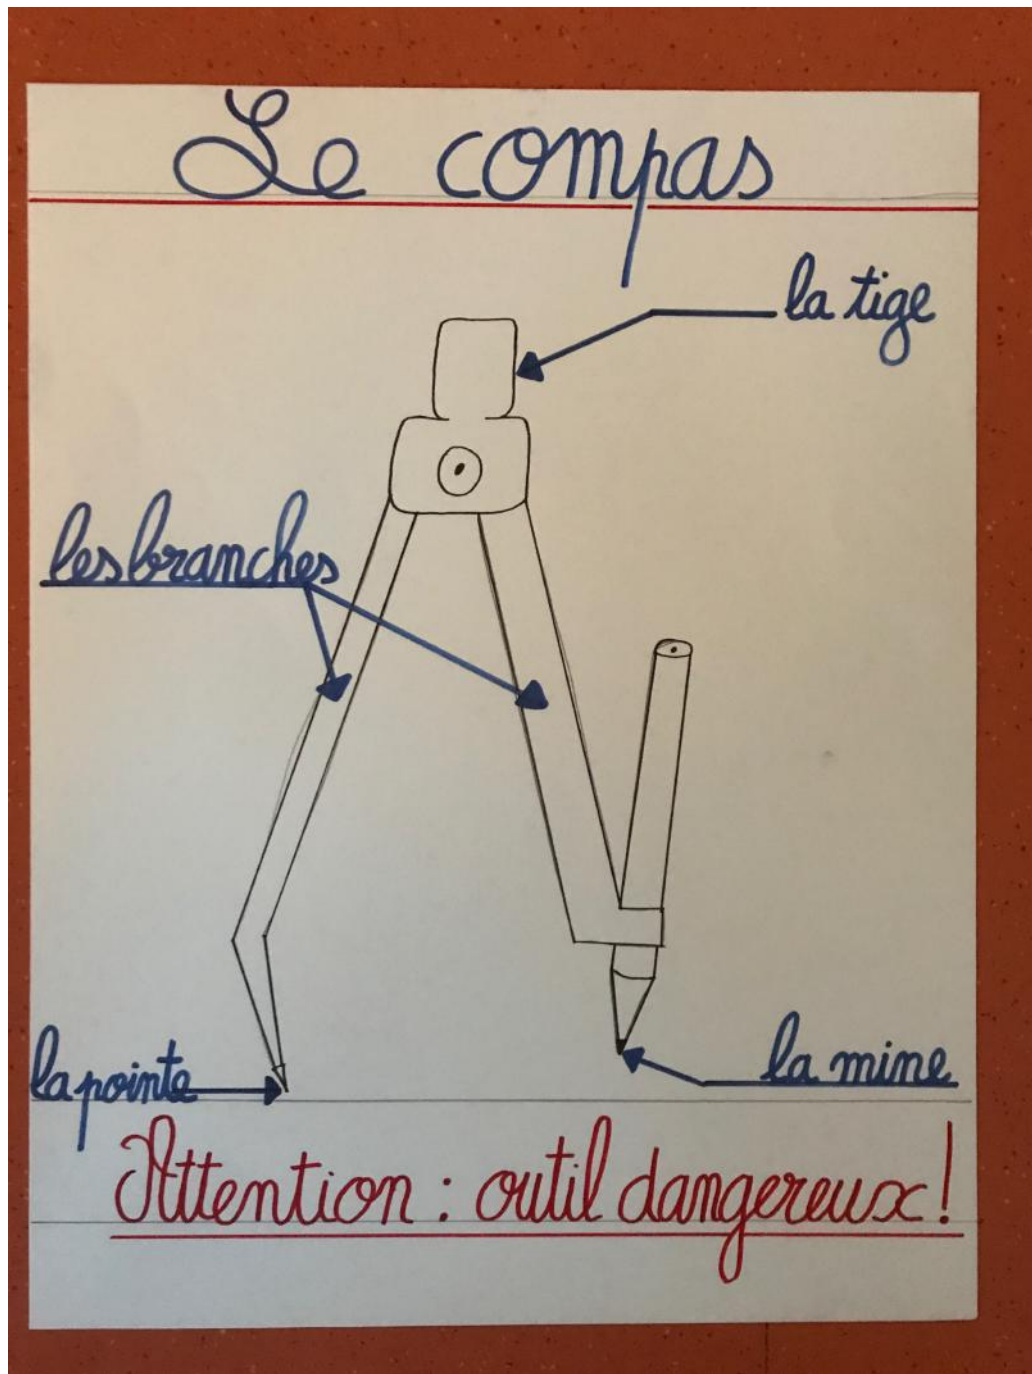 Le compas
la tige
les branches
la pointe
la mine
Attention : outil dangereux !